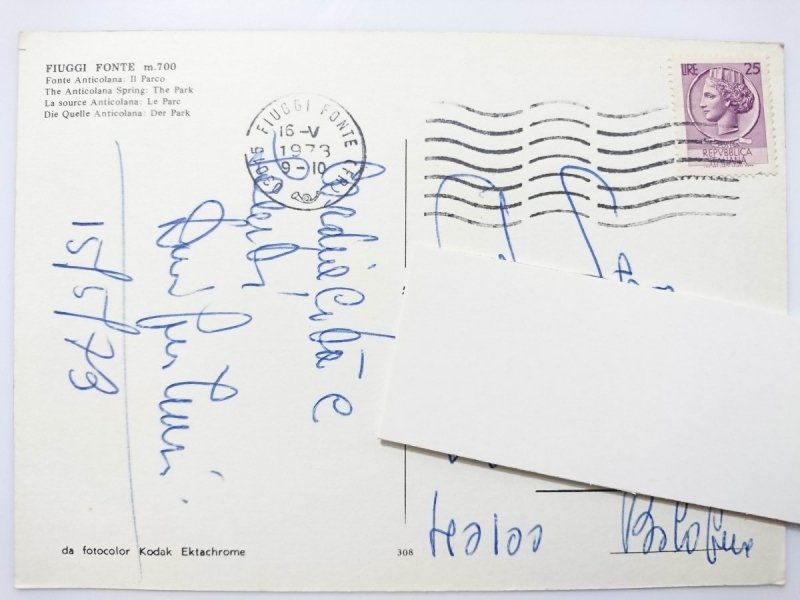 FIUGGI FONTE m.700
Fonte Anticolana: Il Parco
The Anticolana Spring: The Park
La source Anticolana: Le Parc
Die Quelle Anticolana: Der Park
03015 FIUGGI FONTE (FR)
16-V
1973
9-10
LIRE 25
REPVBBLICA
ITALIANA
Cordialità e
Saluti
15/5/73
40100 Bologna
da fotocolor Kodak Ektachrome
308